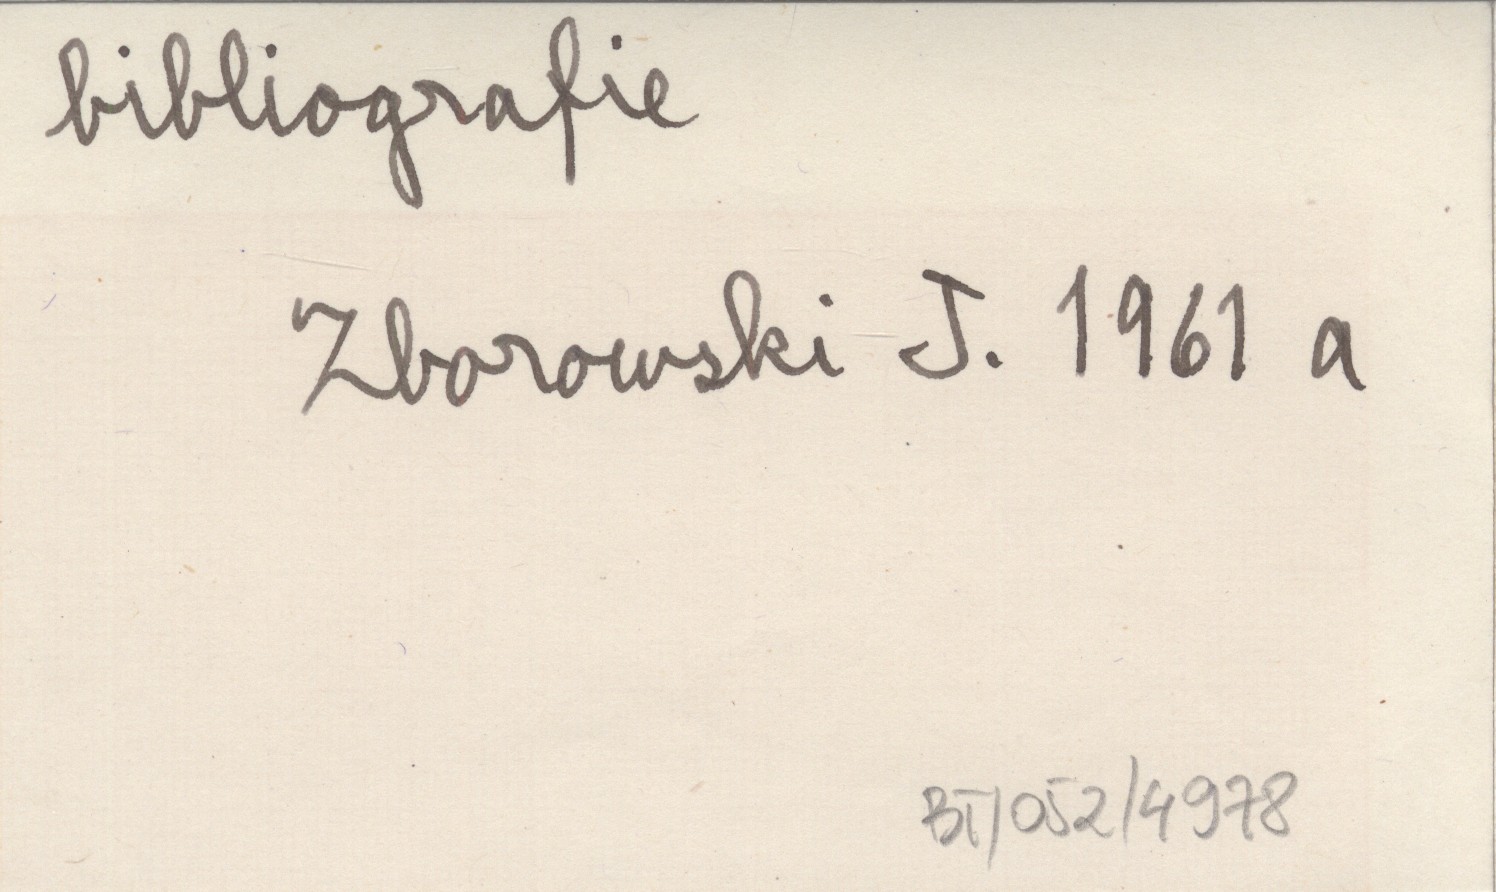 bibliografie
Zborowski J. 1961 a
BT/052/4978